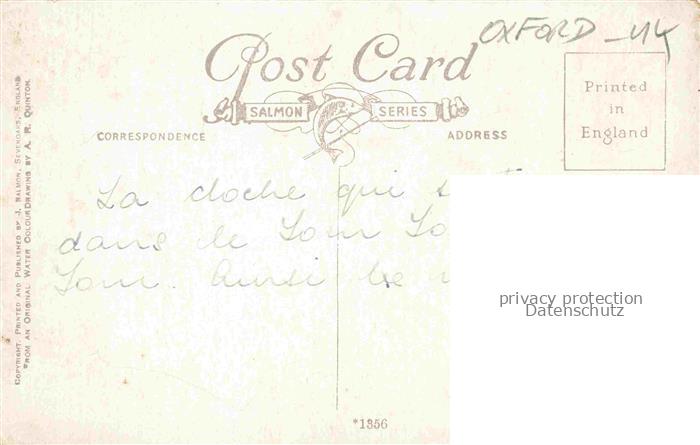 OXFORD - UK
Post Card
SALMON SERIES
Printed
in
England
CORRESPONDENCE
ADDRESS
COPYRIGHT. PRINTED AND PUBLISHED BY J. SALMON, SEVENOAKS, ENGLAND
FROM AN ORIGINAL WATER COLOUR DRAWING BY A. R. QUINTON.
La cloche qui
dans le Tom To
Tom. Ainsi
privacy protection
Datenschutz
*1356